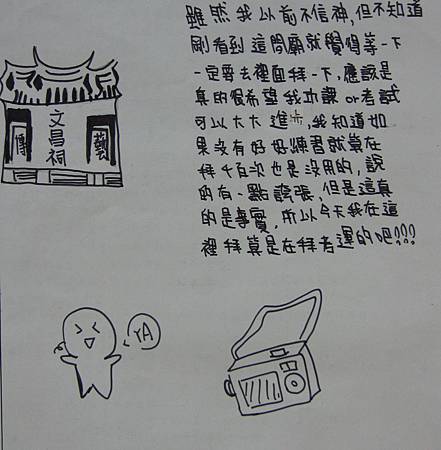 雖然我以前不信神,但不知道
剛看到這間廟就覺得等一下
一定要去裡面拜一下,應該是
真的很希望我功課or考試
可以大大進步,我知道如
果沒有好好練習就算在
拜千百次也是沒用的,說
的有一點誇張,但是這真
的是事實,所以今天我在這
裡拜算是在拜考運的吧!!!
文昌祠
藝
YA